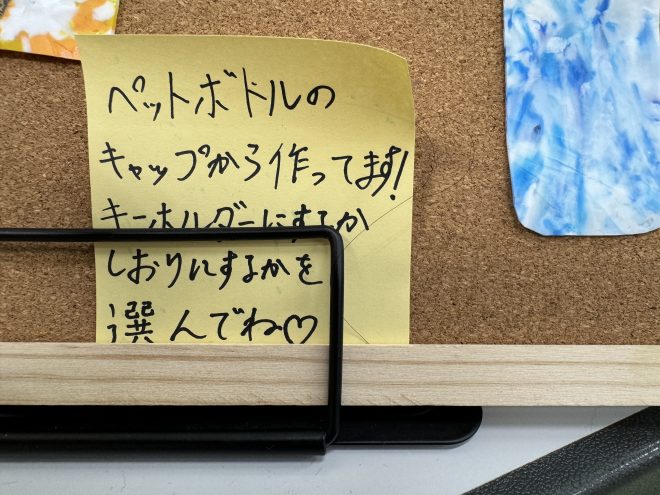 ペットボトルの
キャップから作ってます!
キーホルダーにするか
しおりにするかを
選んでね♡